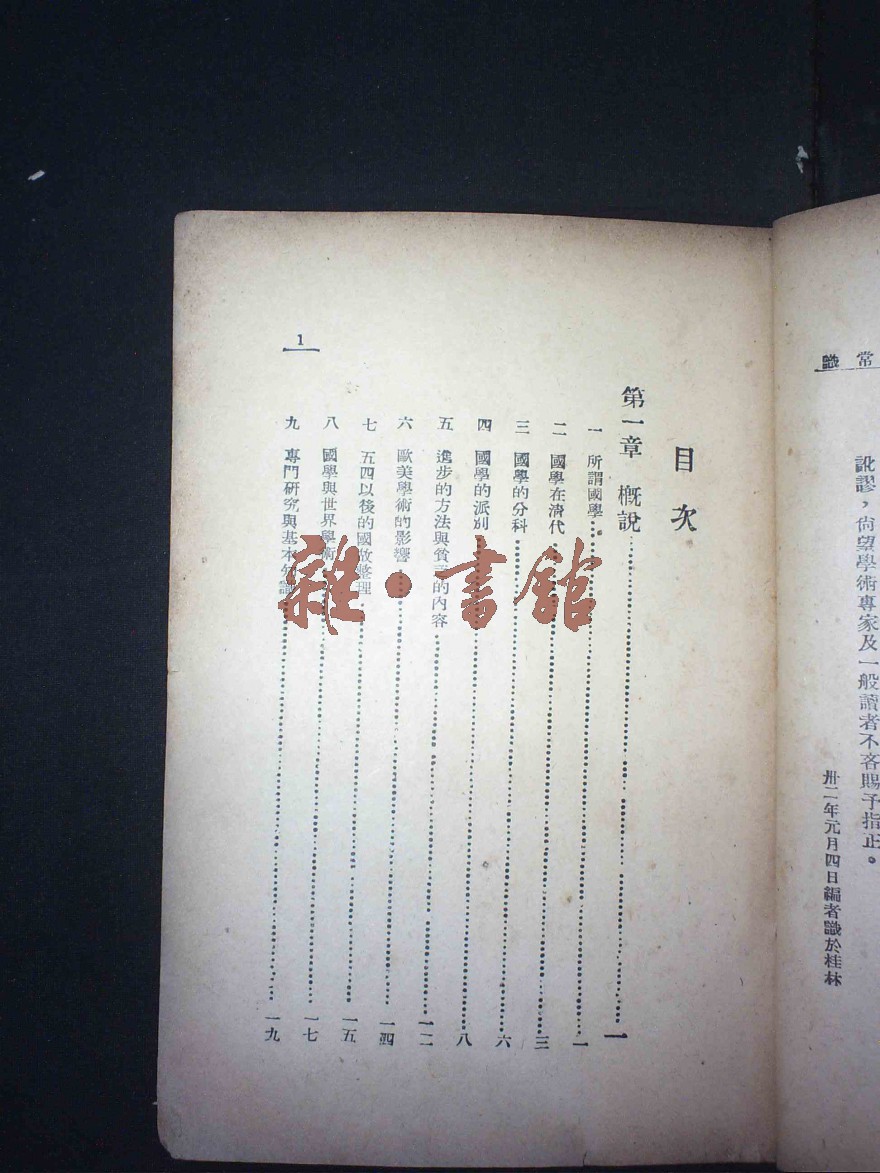 常識
訛謬，尚望學術專家及一般讀者不吝賜予指正。
卅二年元月四日編者識於桂林
目次
第一章 概說……一
一 所謂國學……一
二 國學在清代……三
三 國學的分科……六
四 國學的派別……八
五 進步的方法與貧的內容……一二
六 歐美學術的影響……一四
七 五四以後的國故整理……一五
八 國學與世界學術……一七
九 專門研究與基本知識……一九
1
雜·書館